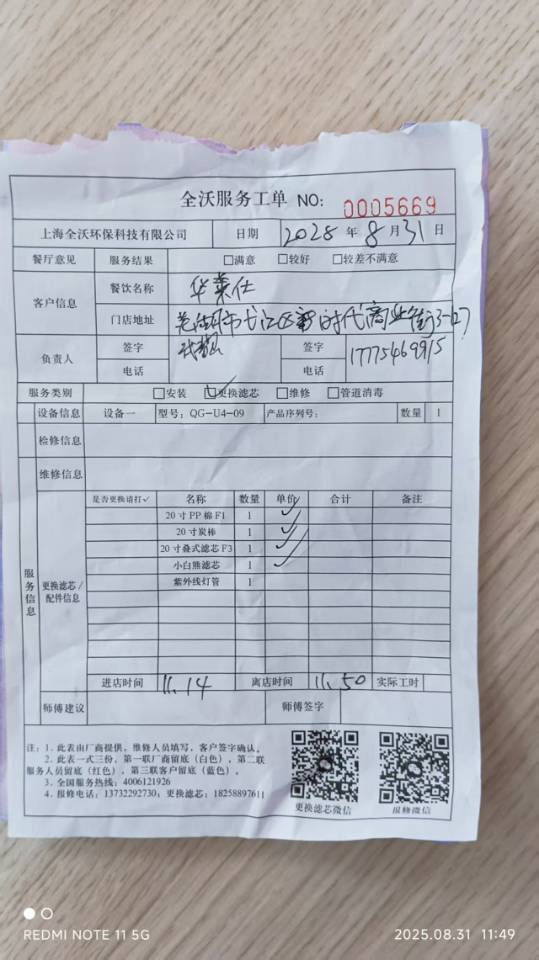 全沃服务工单 NO: 0005669
上海全沃环保科技有限公司 日期 2025 年 8 月 31 日
餐厅意见 服务结果 □满意 □较好 □较差不满意
客户信息 餐饮名称 华莱仕
门店地址 市 江区 时代商业街3-27
负责人 签字 签字
电话 电话 17775469915
服务类别 □安装 ☑更换滤芯 □维修 □管道消毒
设备信息 设备一 型号: QG-U4-09 产品序列号: 数量 1
检修信息
维修信息
服务信息 更换滤芯/配件信息
是否更换请打✓ 名称 数量 单价 合计 备注
20寸PP棉F1 1 ✓
20寸炭棒 1 ✓
20寸叠式滤芯F3 1 ✓
小白熊滤芯 1 ✓
紫外线灯管 1
进店时间 11.14 离店时间 11.50 实际工时
师傅建议 师傅签字
注: 1. 此表由厂商提供, 维修人员填写, 客户签字确认。
2. 此表一式三份, 第一联厂商留底(白色), 第二联
服务人员留底(红色), 第三联客户留底(蓝色)。
3. 全国服务热线: 4006121926
4. 报修电话: 13732292730; 更换滤芯: 18258897611
更换滤芯微信 报修微信
REDMI NOTE 11 5G
2025.08.31 11:49